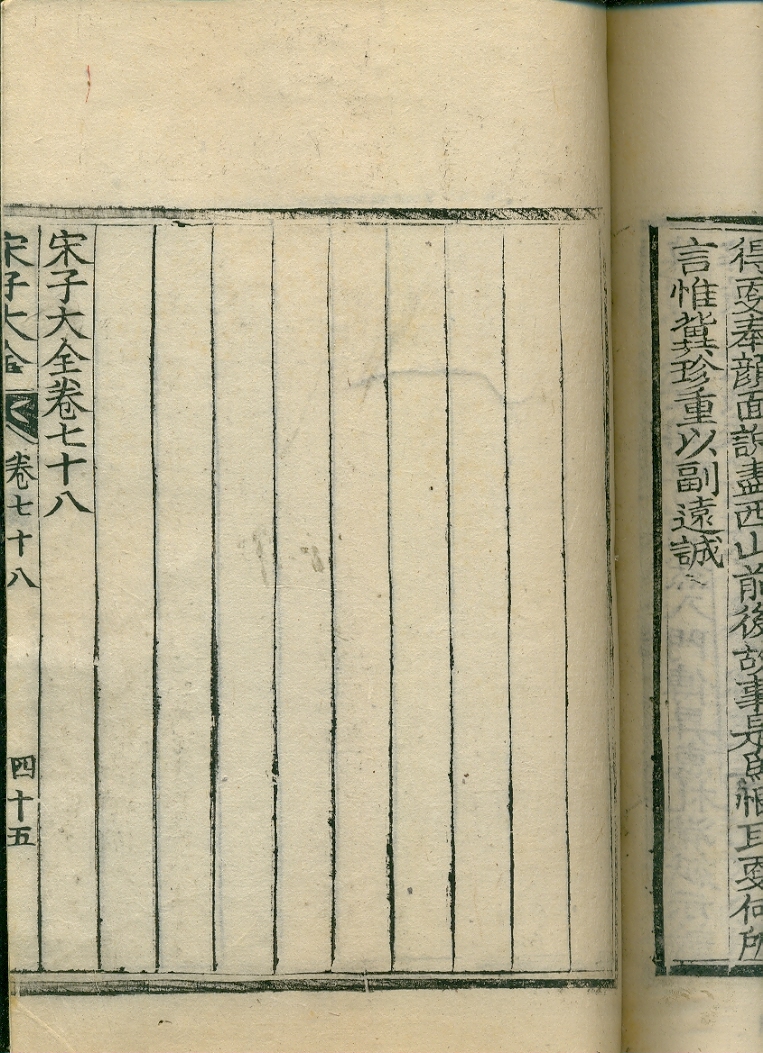 得更奉顔面說盡西山前後故事是爲恨耳更何所
言惟冀珍重以副遠誠
宋子大全卷七十八
宋子大全 卷七十八 四十五